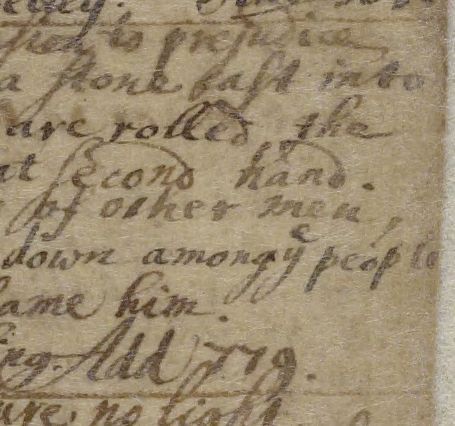 to prejudice
a stone cast into
are rolled, the
at second hand.
of other men,
down among yᵉ people
lame him.
ing. Add 779.
are no light